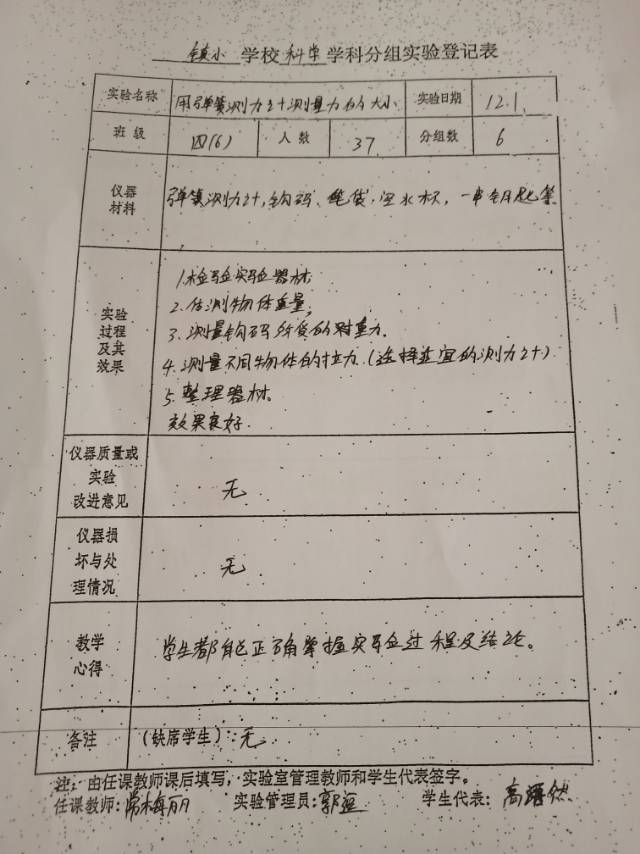 镇小 学校 科学 学科分组实验登记表
实验名称 用弹簧测力计测量力的大小 实验日期 12.1.
班级 四(6) 人数 37 分组数 6
仪器材料 弹簧测力计,钩码、绳袋,空水杯,一串钥匙等
实验过程及其效果
1.检验实验器材.
2.估测物体重量.
3.测量钩码所受的对重力.
4.测量不同物体的拉力.(选择适宜的测力计)
5.整理器材。
效果良好.
仪器质量或实验改进意见 无
仪器损坏与处理情况 无
教学心得 学生都能正确掌握实验过程及结论。
备注 (缺席学生):无
注:由任课教师课后填写,实验室管理教师和学生代表签字。
任课教师:常梅丽 实验管理员:郭 学生代表:高 然